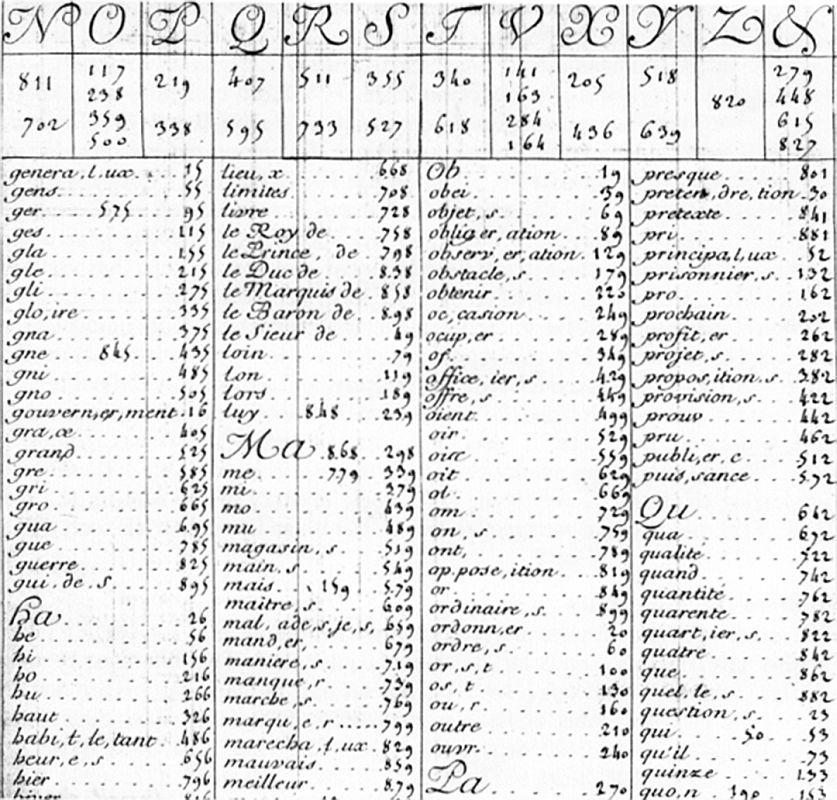 N O P Q R S T V X Y Z &
811 117 219 407 511 355 340 141 205 518 279
238 163 820 448
702 359 338 595 733 527 618 284 436 639 615
500 164 827
genera, l, ux 15
gens 55
ger 575 95
ges 115
gla 155
gle 215
gli 275
glo, ire 335
gna 375
gne 845 435
gni 485
gno 505
gouvern, er, ment 16
gra, ce 405
grand 525
gre 585
gri 625
gro 665
gua 695
gue 785
guerre 825
gui. de. s 895
ha 26
he 56
hi 156
ho 216
hu 266
haut 326
habi, t, le, tant 486
heur, e, s 656
hier 796
lieu, x 668
limites 708
livre 728
le Roy de 758
le Prince, de 798
le Duc de 838
le Marquis de 858
le Baron de 898
le Sieur de 49
loin 79
lon 119
lors 189
luy 848 239
Ma 868 298
me 779 339
mi 379
mo 439
mu 489
magasin, s 519
main, s 549
mais 159 579
maitre, s 609
mal, ade, s, je, s, 659
mand, er, 679
maniere, s 719
manque, r 739
marche, s 769
marqu, e, r 799
marecha, l, ux 829
mauvais 859
meilleur 879
Ob 19
obei 39
objet, s 69
oblig, er, ation 89
observ, er, ation 129
obstacle, s 179
obtenir 220
oc, casion 249
ocup, er 289
of 349
office, ier, s 429
offre, s 449
oient 499
oir 529
oise 559
oit 629
ol 669
om 729
on, s 759
ont, 789
op. pose, ition 819
or 849
ordinaire, s 899
ordonn, er 20
ordre, s 60
or, s, t 100
os, t 130
ou, r 160
outre 210
ouvr 240
Pa 270
presque 801
preten, dre, tion 30
pretexte 841
pri 881
principa, l, ux 52
prisonnier, s 132
pro 162
prochain 202
profit, er 262
projet, s 282
propos, ition, s 382
provision, s 422
prouv 442
pru 462
publi, er, c 512
puis, sance 572
Qu 642
qua 672
qualite 722
quand 742
quantite 762
quarente 782
quart, ier, s 822
quatre 842
que 862
quel, le, s 882
question, s 23
qui 50 53
qu'il 73
quinze 133
quo, n 190 153